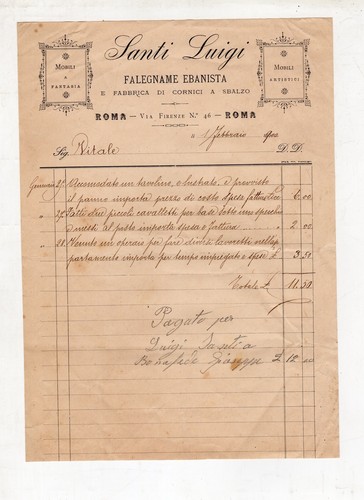 Santi Luigi
MOBILI
A
FANTASIA
MOBILI
ARTISTICI
FALEGNAME EBANISTA
E FABBRICA DI CORNICI A SBALZO
ROMA — VIA FIRENZE N.º 46 — ROMA
1 Febbraio 190
Sig. Vitale D. D.
Gennaio 27 Accomodato un tavolino, e lustrato, e provvisto
il panno importa prezzo di costo spese fattura £ 6.00
" 28 Fatti due piccoli cavalletti per base sotto uno specchio
e messi al posto importa spesa e fattura " 2.00
" 31 Venuto un operaio per fare diversi lavoretti nell'ap
partamento importa per tempo impiegato e spese £ 3.50
Totale £ 11.50
Pagato per
Luigi Santi a
Giuseppe £ 12.00